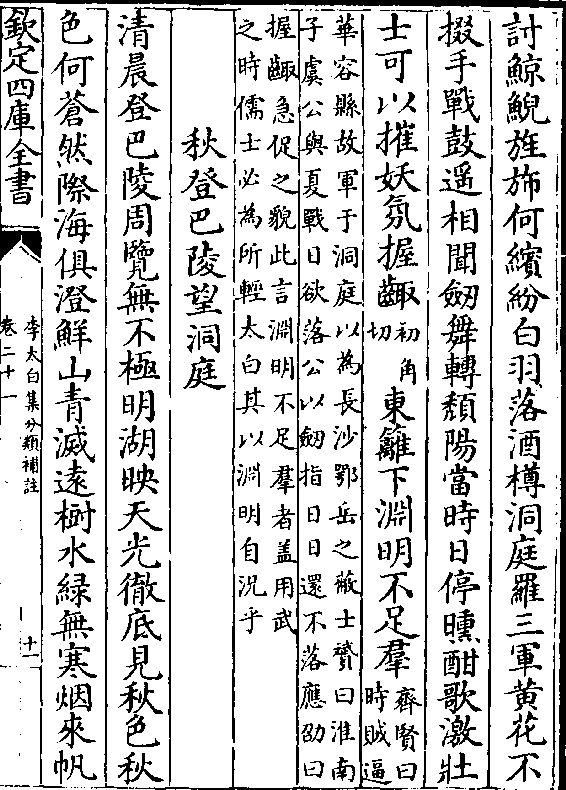 討鯨鯢旌斾何繽紛白羽落酒樽洞庭羅三軍黄花不
掇手戰鼓遥相聞劒舞轉頽陽當時日停曛酣歌激壯
士可以摧妖氛握齱初角切東籬下淵明不足羣齊賢曰時賊逼
華容縣故軍于洞庭以為長沙鄂岳之蔽士贇曰淮南
子虞公與夏戰日欲落公以劒指日日還不落應劭曰
握齱急促之貌此言淵明不足羣者盖用武
之時儒士必為所輕太白其以淵明自況乎
秋登巴陵望洞庭
清晨登巴陵周覽無不極明湖映天光徹底見秋色秋
色何蒼然際海俱澄鮮山青滅逺樹水緑無寒烟來帆
欽定四庫全書
李太白集分類補註
卷二十一
十一